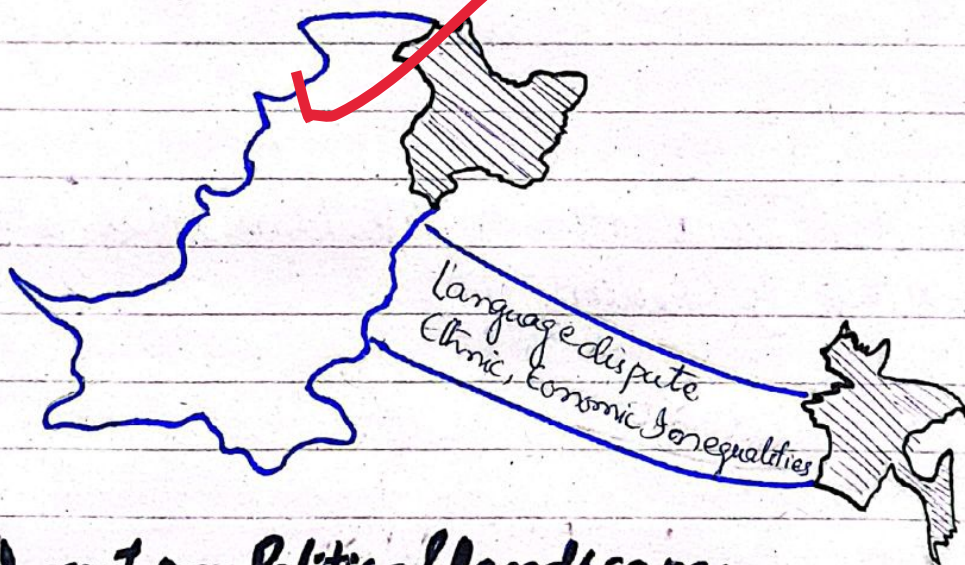 Language dispute
Ethnic, Economic Inequalities
Political landscape